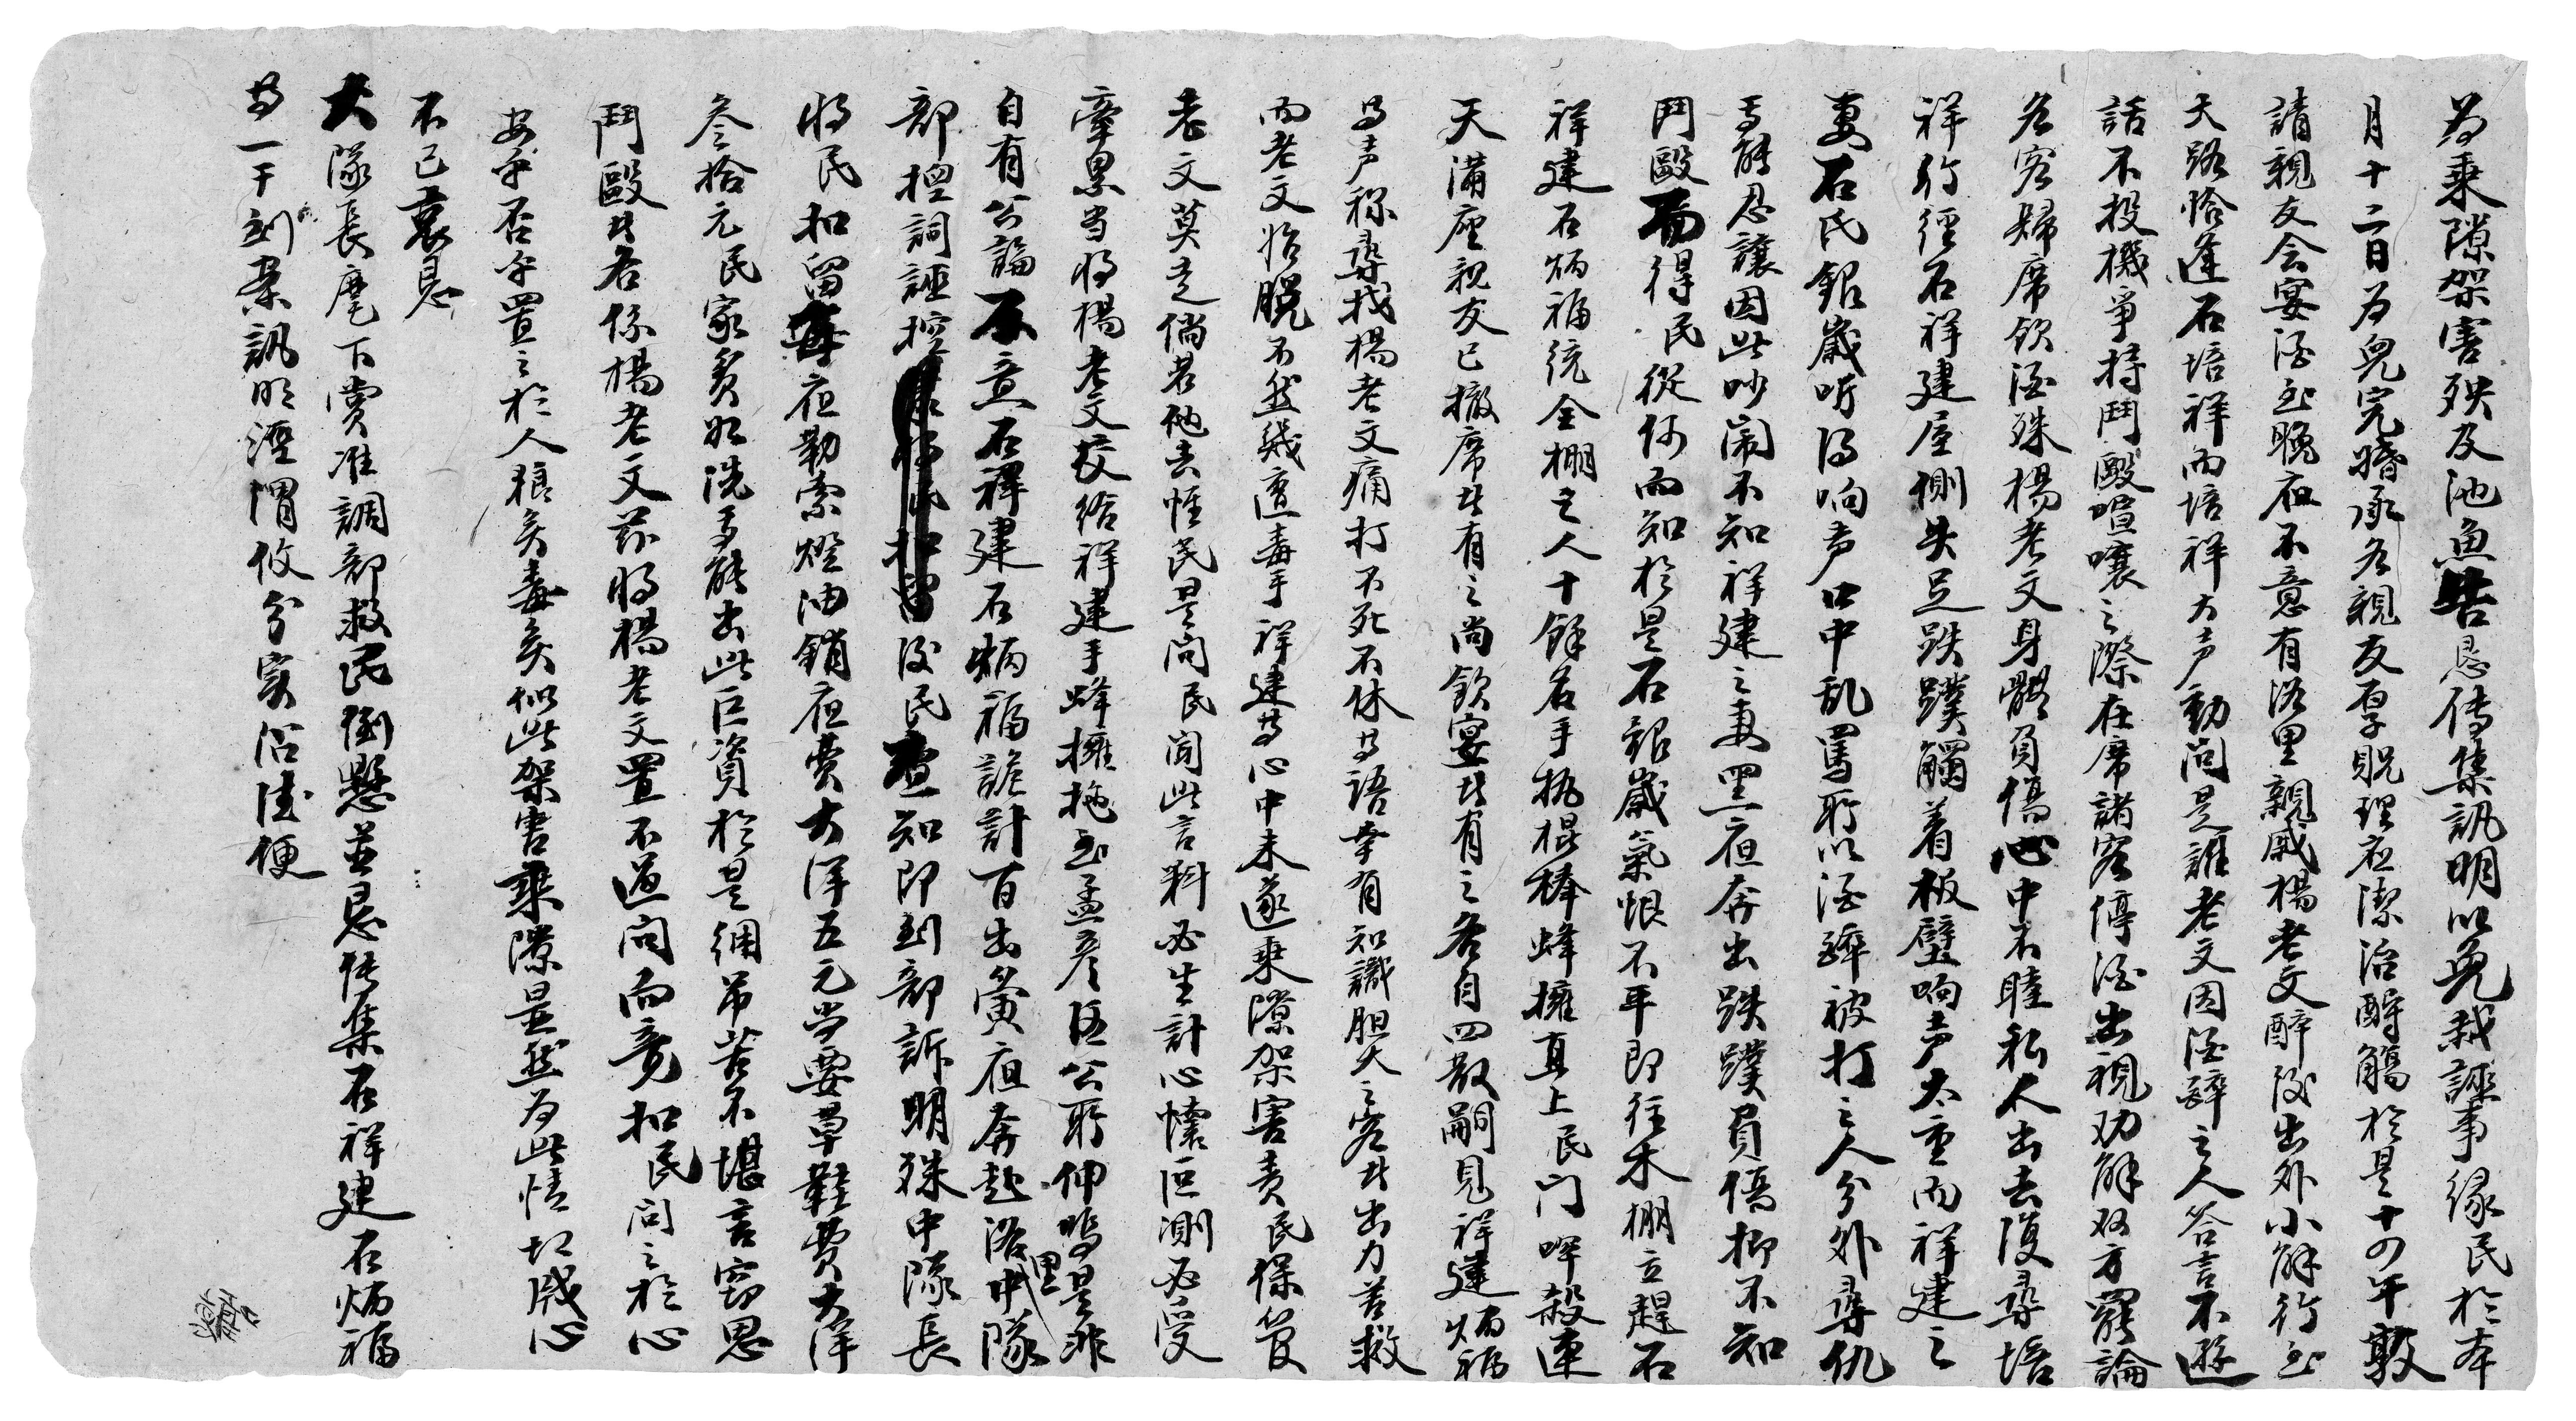 為乘隙架害殃及池魚告恳传集訊明以免栽誣事緣民於本
月十二日为兒完婚承各親友厚貺理应潔治酧觴於是十四午敦
請親友会宴酒至晚夜不意有洛里親戚楊老文醉後出外小解行至
天路恰逢石培祥而培祥大声動问是誰老文因酒醉之人答言不遜
話不投機爭持鬥毆喧嚷之際在席諸客停酒出視劝解双方罷論
各客歸席飲酒殊楊老文身體負傷心中不睦私人出去復尋培
祥行經石祥建屋側失足跌蹼觸着板壁响声太重而祥建之
妻石氏銀歲听得响声口中乱罵所以酒醉被打之人分外尋仇
焉能忍讓因此吵闹不知祥建之妻黑夜奔出跌蹼負傷抑不知
鬥毆而得民從何而知於是石銀歲氣恨不平即往木棚立趕石
祥建石炳福統全棚之人十餘名手执棍棒蜂擁直上民门喊殺連
天滿座親友已撤席者有之尚飲宴者有之各自四散嗣見祥建炳福
等声称尋找楊老文痛打不死不休等語幸有知識胆大之客者出力苦救
而老文始脱不然幾遭毒手祥建等心中未遂乘隙架害责民保管
老文莫走倘若他去惟民是问民闻此言料必生計心懷叵測必受
牽累当将楊老文交给祥建手蜂擁拖至孟彦伍公所伸鳴是非
自有公論不意石祥建石炳福詭計百出黉夜奔赴洛里中隊
部控詞誣控後民查知即到部訴明殊中隊長
将民扣留每夜勒索燈油銷夜费大洋五元尚要草鞋费大洋
叁拾元民家贫如洗焉能出此巨資於是綑吊苦不堪言窃思
鬥毆者名係楊老文兹将楊老文置不過问而竟扣民问之於心
安乎否乎置之於人狼矣毒矣似此架害乘隙显然为此情切戚心
不已哀恳
大隊長麾下賞准調部救民倒懸並恳传集石祥建石炳福
等一干到案訊明涇渭攸分实沾德便